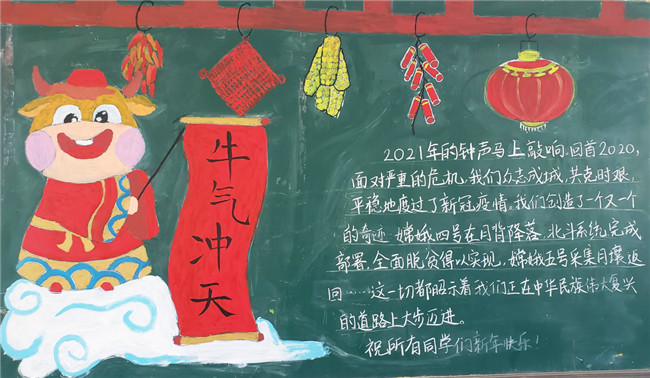 牛气冲天
2021年的钟声马上敲响.回首2020,
面对严重的危机,我们众志成城,共克时艰,
平稳地度过了新冠疫情,我们创造了一个又一个
的奇迹 嫦娥四号在月背降落,北斗系统完成
部署,全面脱贫得以实现,嫦娥五号采集月壤返
回……这一切都昭示着我们正在中华民族伟大复兴
的道路上大步迈进。
祝所有同学们新年快乐!